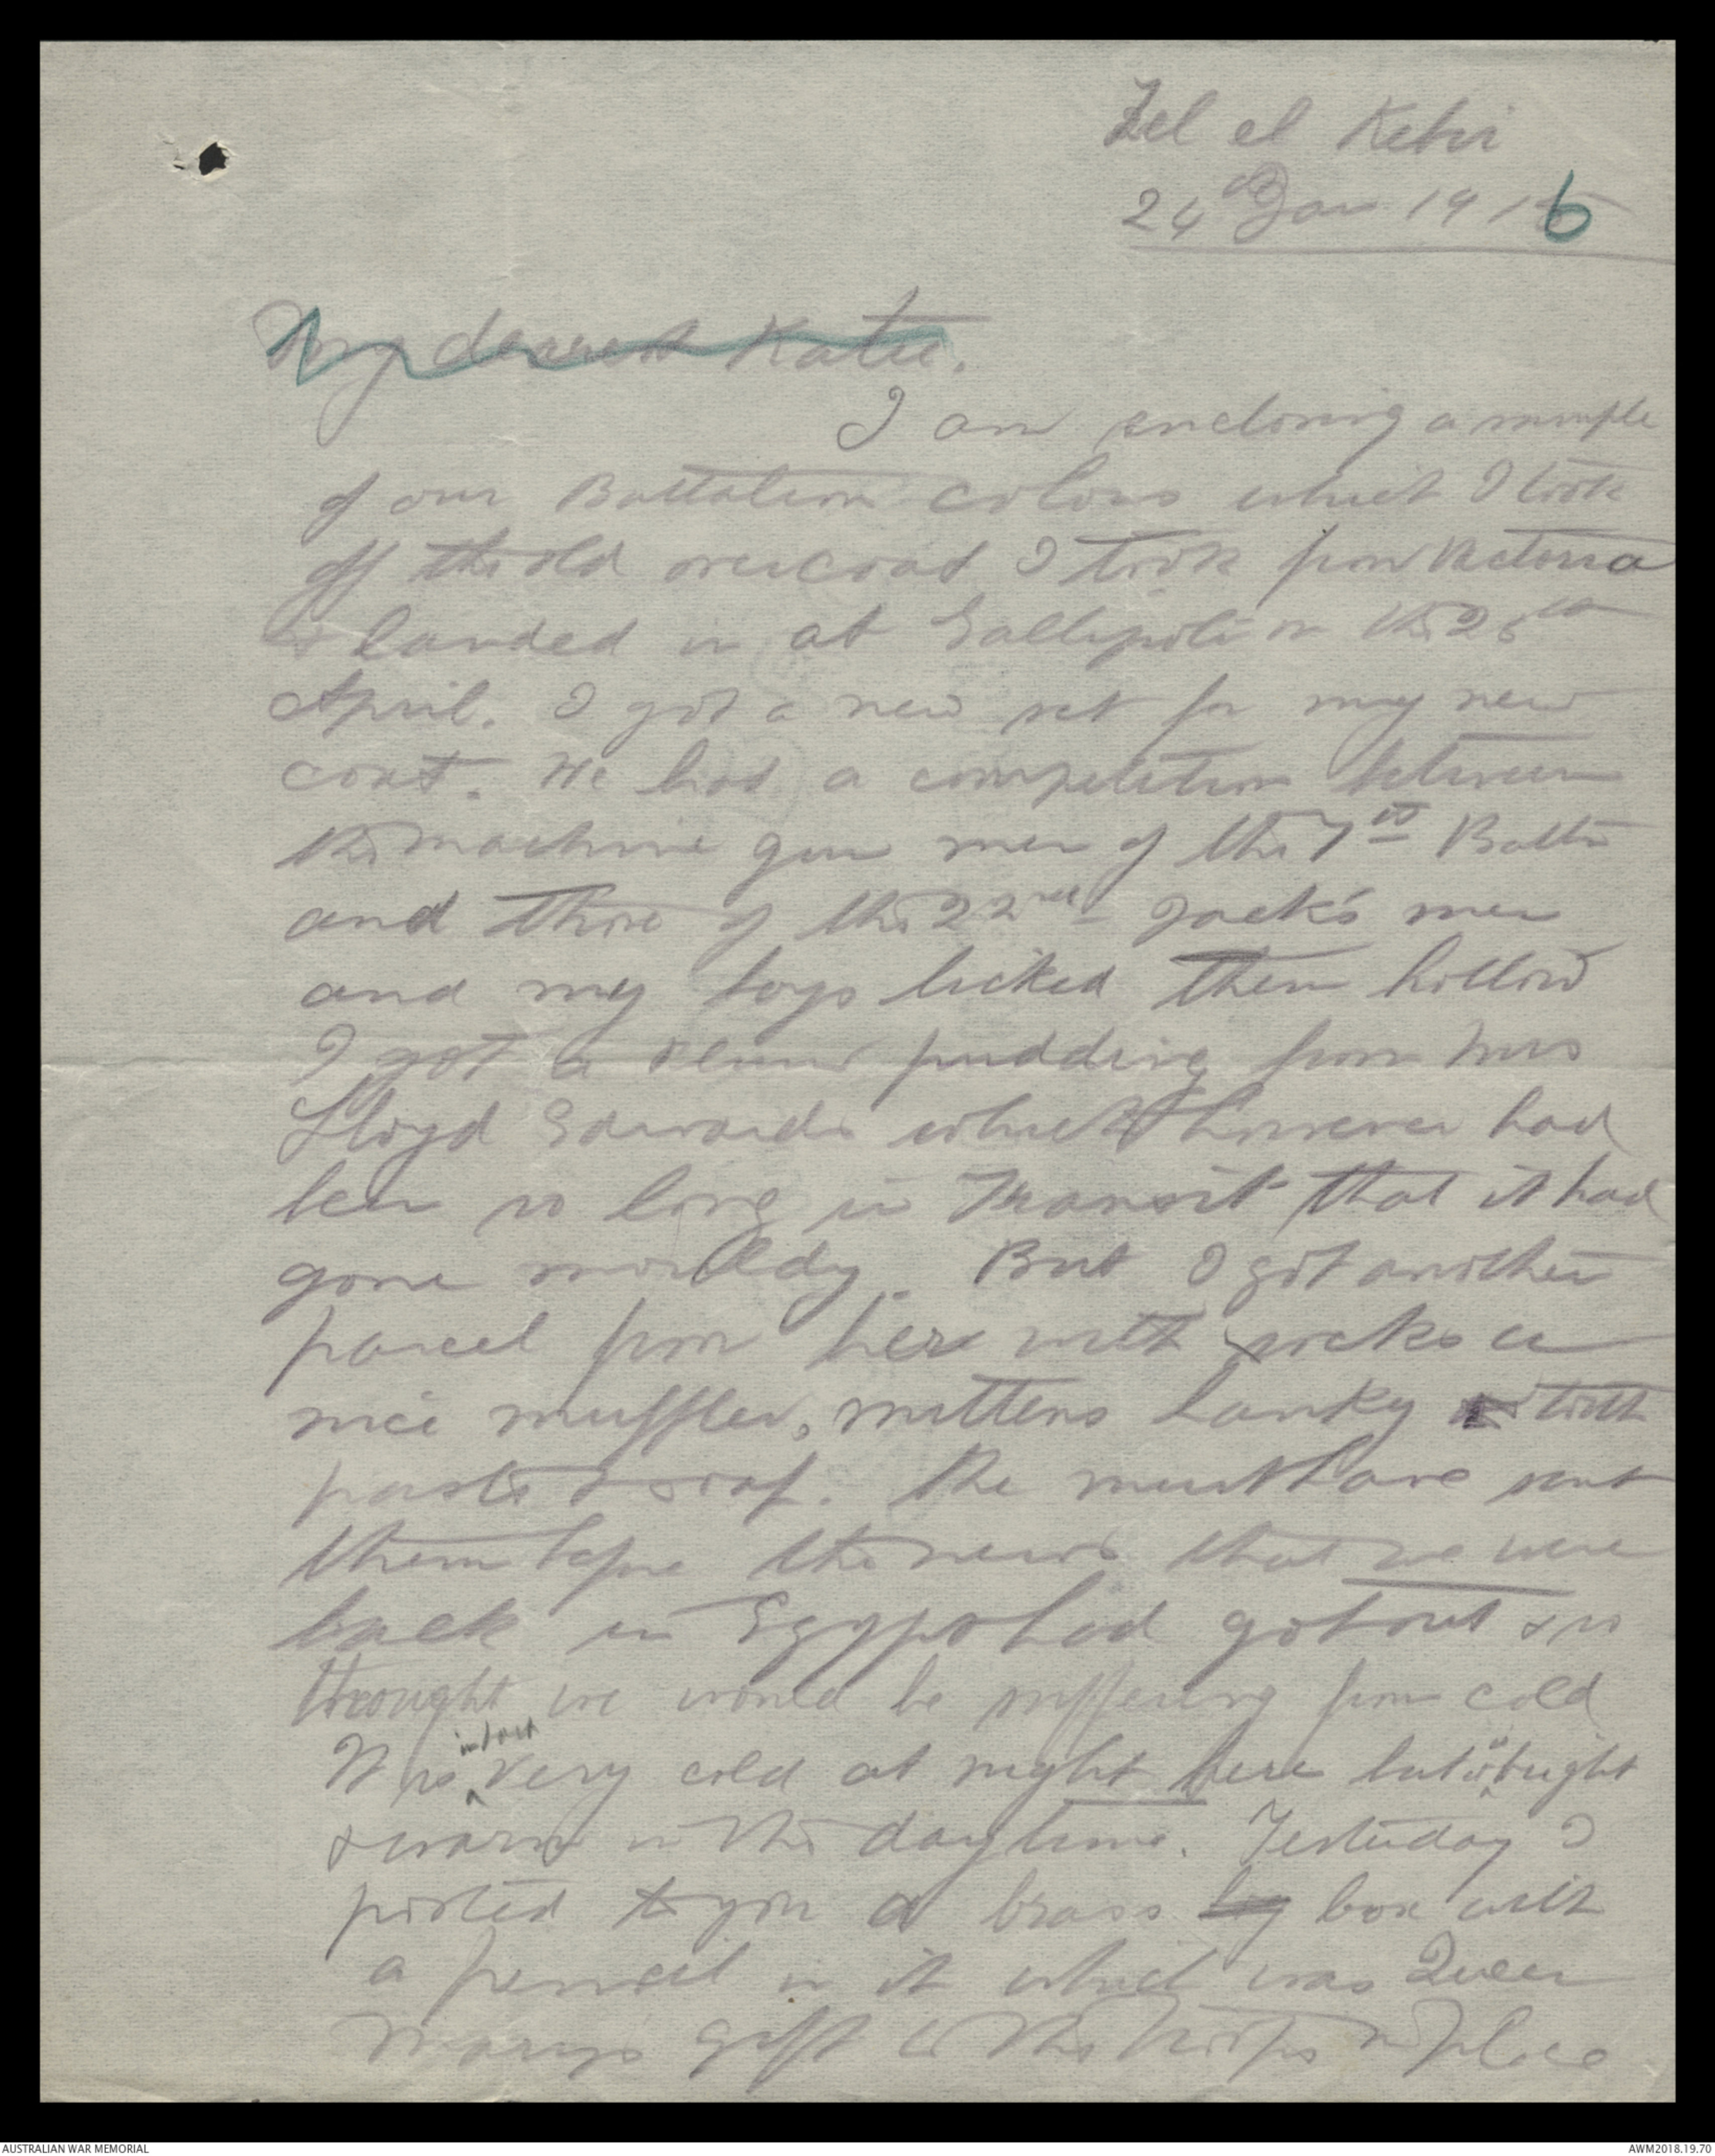 Tel el Kebir
24th Jan 1916
My dearest Katie.
I am enclosing a sample
of our Battalion colors which I took
off the old overcoat I took from Victoria
& landed in at Gallipoli on the 25th
April. I got a new set for my new
coat. We had a competition between
the machine gun men of the 7th Battn
and those of the 22nd Jack's men
and my boys licked them hollow
I got a plum pudding from Mrs
Lloyd Edwards which however had
been so long in transit that it had
gone mouldy. But I got another
parcel from her with socks a
nice muffler, mittens hanky tooth
paste & soap. She must have sent
them before the news that we were
back in Egypt had got out & so
thought we would be suffering from cold
It is in fact very cold at night here but is bright
& warm in the daytime. Yesterday I
posted to you a brass box with
a pencil in it which was Queen
Marys gift to the troops in place
AUSTRALIAN WAR MEMORIAL
AWM2018.19.70